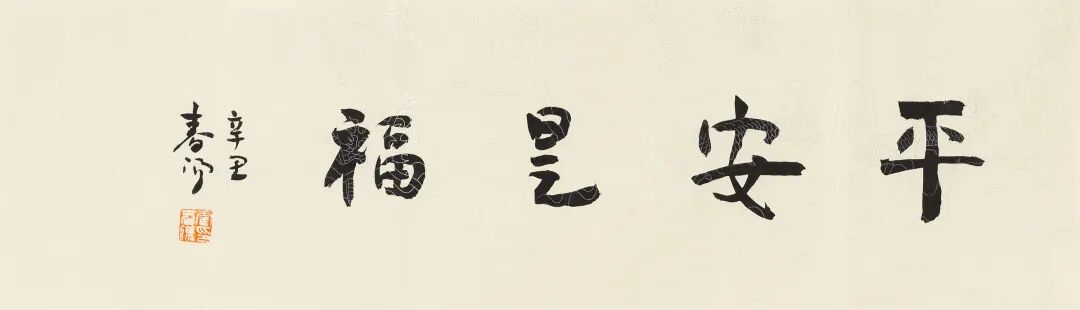 平安是福
辛丑
春